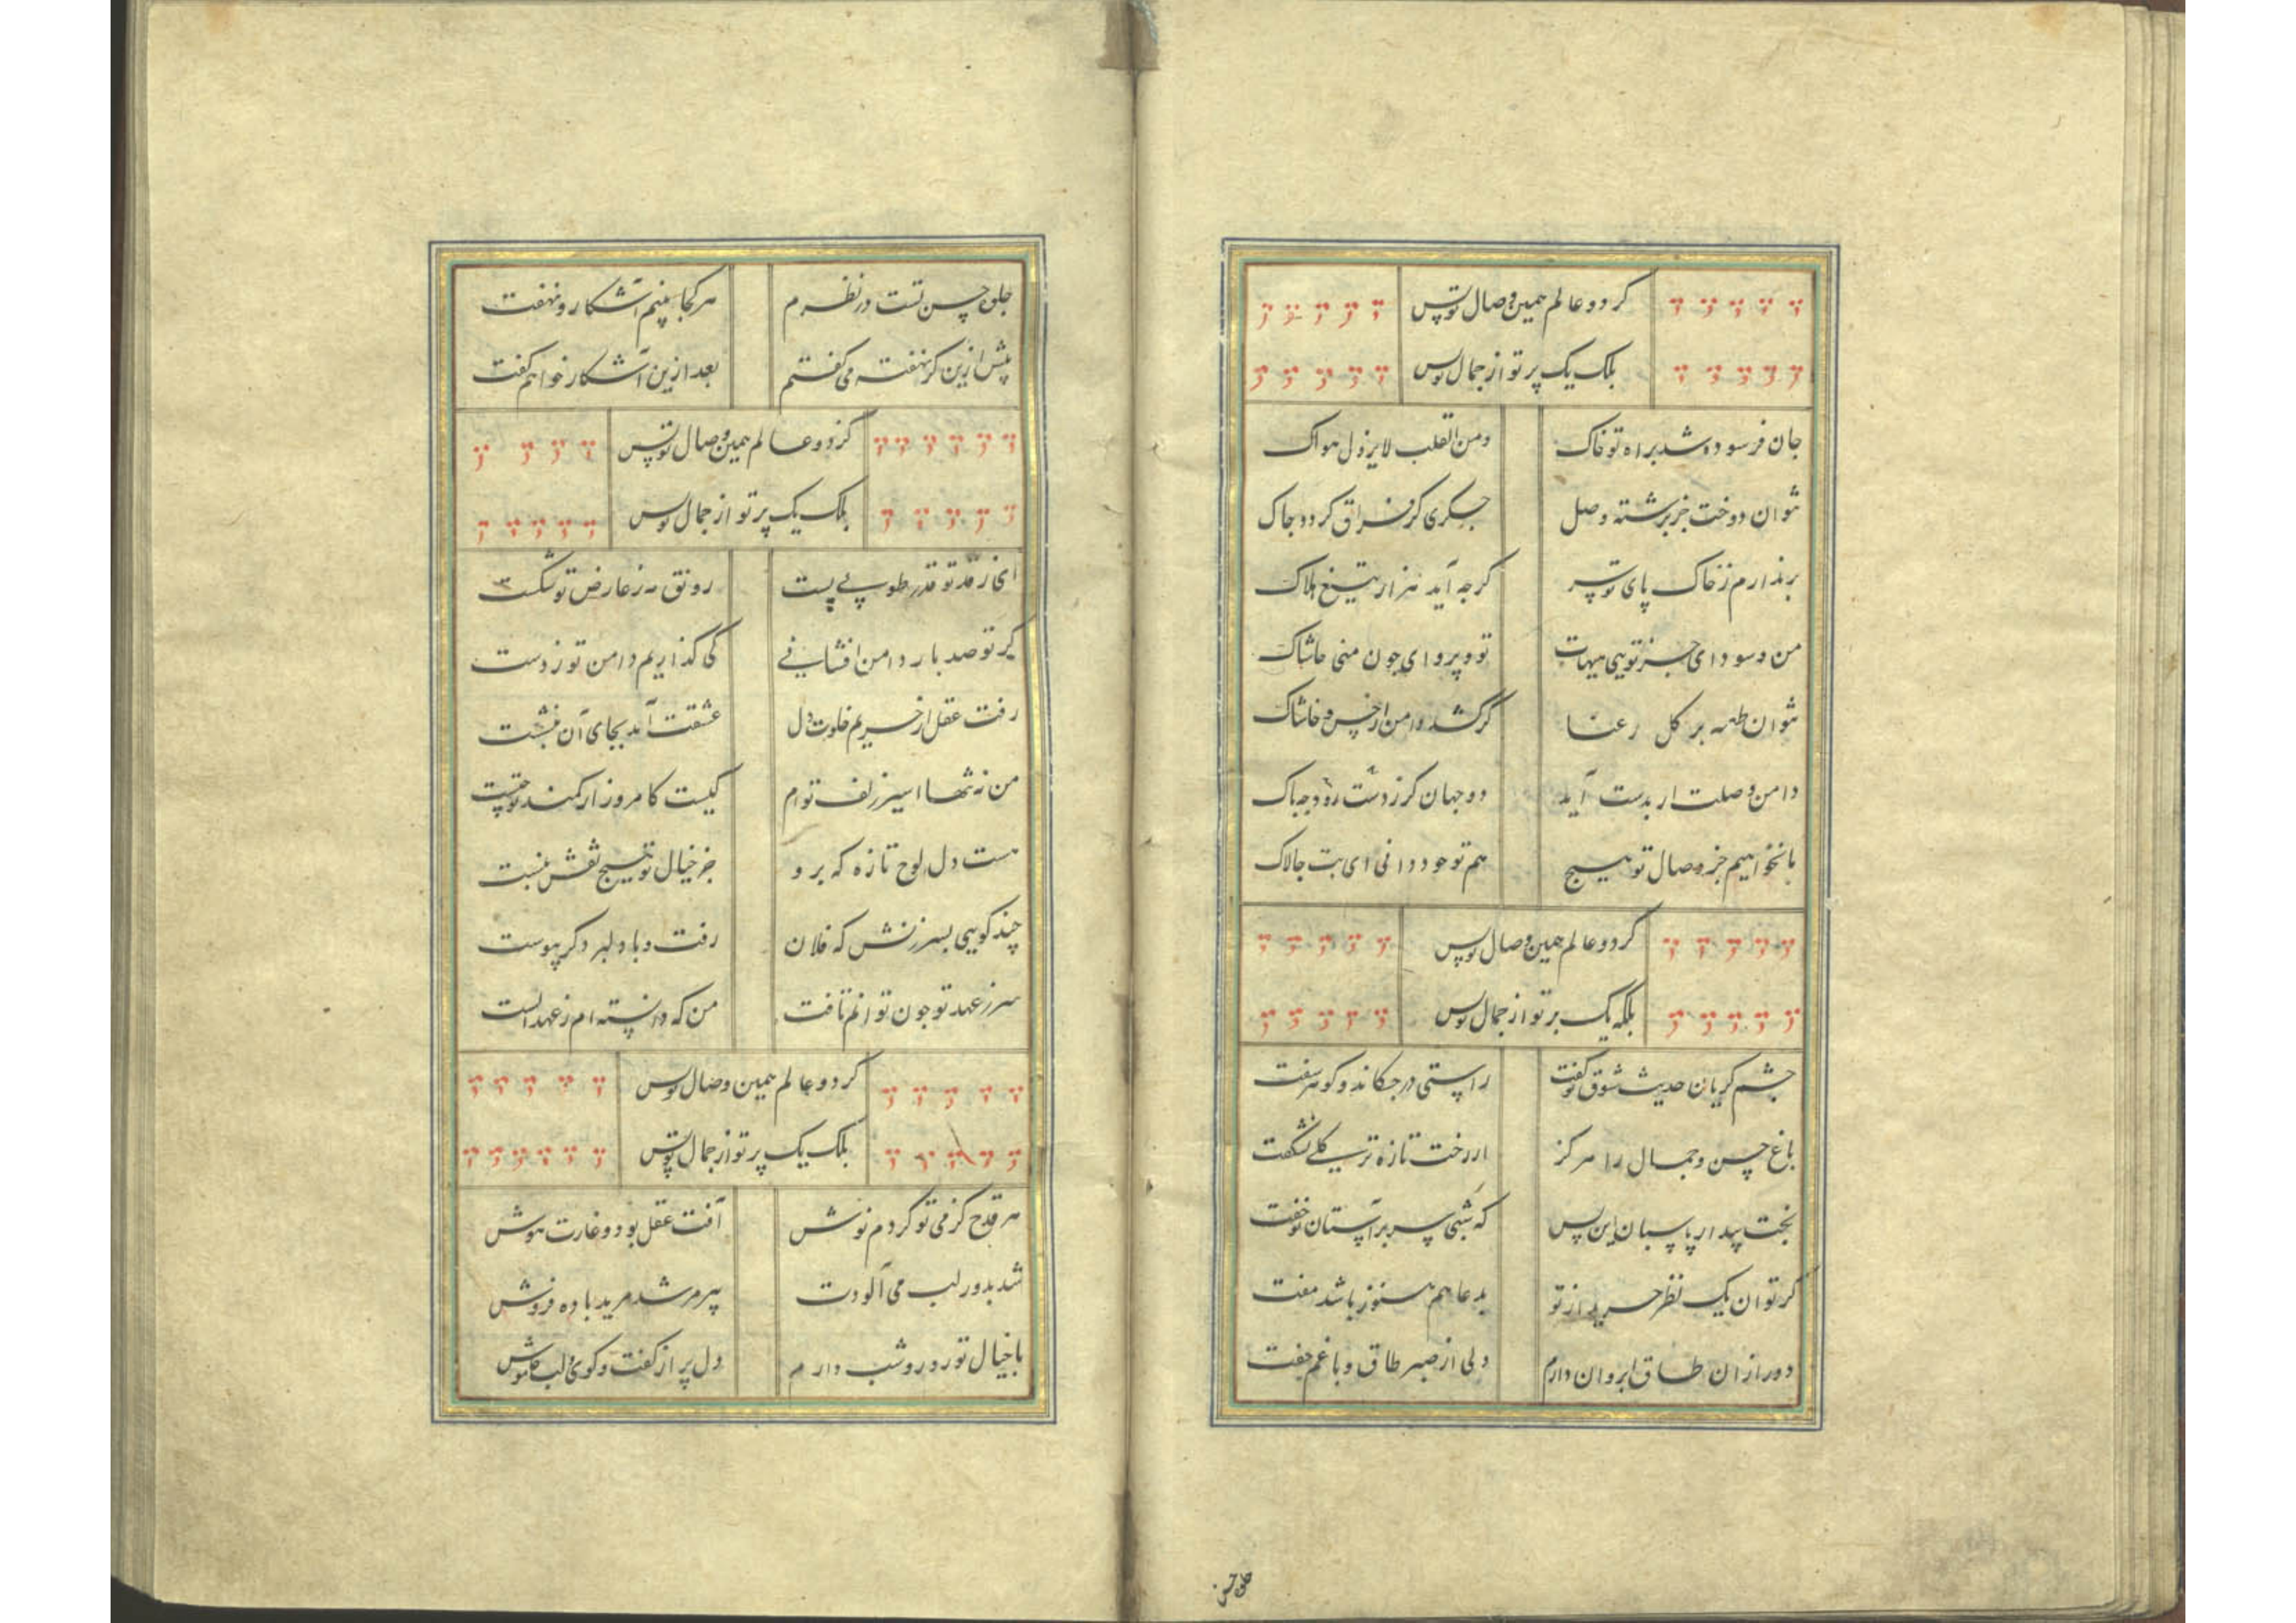 کر دو عالم همین وصال توبس
بلک یک پرتو از جمال توبس
جان فرسوده شد براه تو خاک ومن القلب لایزول هواک
نتوان دوخت جز برشته وصل جکری کز فراق کردد جاک
برندارم ز خاک پای تو سر کرجه آید هزار تیغ هلاک
من و سودای جز تویی هیهات تو و پروای جون منی حاشاک
نتوان طعنه بر کل رعنا کر کشد دامن از خس و خاشاک
دامن وصلت ار بدست آید دو جهان کر ز دست رود جه باک
ما نخواهیم جز وصال تو هیج هم تو خود دانی ای بت جالاک
کر دو عالم همین وصال توبس
بلکه یک برتو از جمال توبس
چشم کریان حدیث شوق تو کفت راستی در جکاند و کوهر سفت
باغ حسن و جمال را هرکز از رخت تازه تر کلی نشکفت
بخت بیدار پاسبان این بس که شبی سر بر آستان تو خفت
کر توان یک نظر خرید از تو بدعا هم هنوز باشد مفت
دور از ان طاق ابروان دارم دلی از صبر طاق و با غم جفت
جلوه حسن
جلوه حسن تست در نظرم هر کجا بینم آشکار و نهفت
پیش ازین کر نهفته می کفتم بعد ازین آشکار خواهم کفت
کر دو عالم همین وصال توبس
بلک یک پرتو از جمال توبس
ای ز قد تو قدر طوبی پست رونق مه ز عارض تو شکست
کر تو صد بار دامن افشانی کی کذاریم دامن تو ز دست
رفت عقل از حریم خلوت دل عشقت آمد بجای آن بنشست
من نه تنها اسیر زلف توام کیست کامروز از کمند تو جست
هست دل لوح تازه که برو جز خیال تو هیج نقش نبست
چند کویی بسرزنش که فلان رفت و با دلبر دکر پیوست
سر ز عهد تو جون توانم تافت من که دانسته ام ز عهد الست
کر دو عالم همین وصال توبس
بلک یک پرتو از جمال توبس
هر قدح کز می تو کردم نوش آفت عقل بود و غارت هوش
شد بدور لب می آلودت پیر مرشد مرید باده فروش
با خیال تو روز و شب دارم دل پر از کفت و کوی و لب خاموش